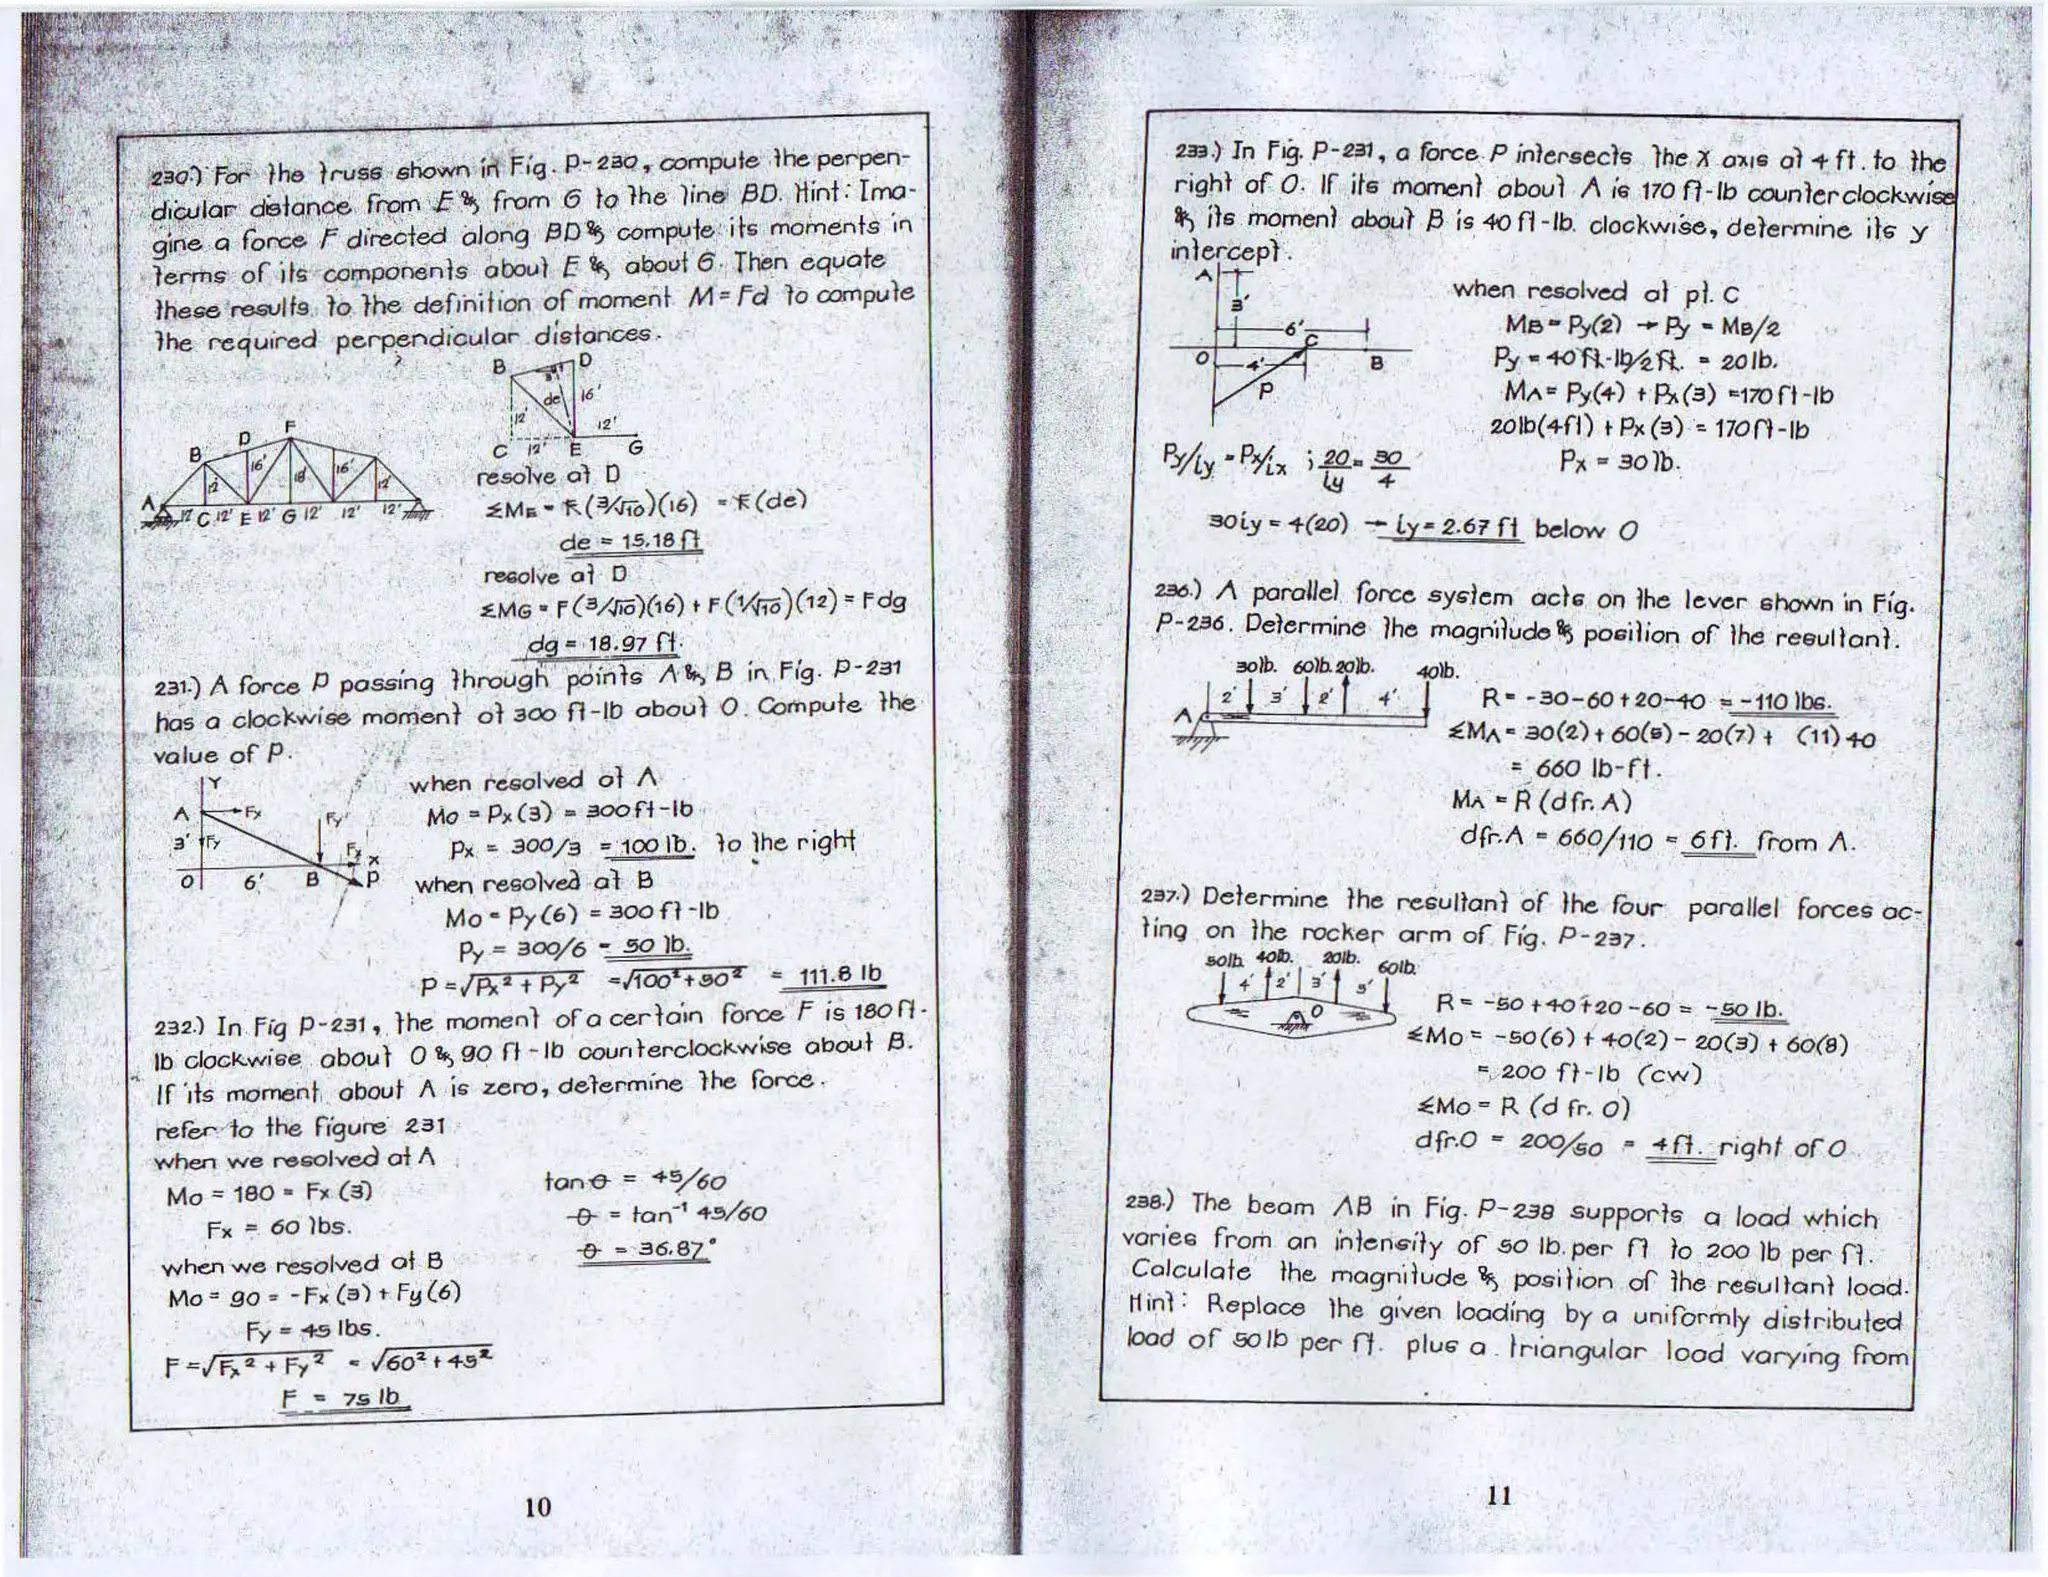 230.) For the truss shown in Fig. P-230, compute the perpen-
dicular distance from E & from G to the line BD. Hint: Ima-
gine a force F directed along BD & compute its moments in
terms of its components about E & about G. Then equate
these results to the definition of moment M = Fd to compute
the required perpendicular distances.
B D
3'
de 16'
12' 12'
C 12' E G
F
B D
16' 16'
12' 18' 12'
A 12' C 12' E 12' G 12' 12' 12'
resolve at D
ΣME = F(3/√10)(16) = F(de)
de = 15.18 ft
resolve at D
ΣMG = F(3/√10)(16) + F(1/√10)(12) = Fdg
dg = 18.97 ft.
231.) A force P passing through points A & B in Fig. P-231
has a clockwise moment of 300 ft-lb about O. Compute the
value of P.
Y
A Fx Fy
3' Fy Fx X
O 6' B P
when resolved at A
Mo = Px(3) = 300 ft-lb
Px = 300/3 = 100 lb. to the right
when resolved at B
Mo = Py(6) = 300 ft-lb
Py = 300/6 = 50 lb.
P = √Px² + Py² = √100² + 50² = 111.8 lb
232.) In Fig P-231, the moment of a certain force F is 180 ft-
lb clockwise about O & 90 ft-lb counterclockwise about B.
If its moment about A is zero, determine the force.
refer to the figure 231
when we resolved at A
Mo = 180 = Fx (3)
Fx = 60 lbs.
when we resolved at B
Mo = 90 = -Fx (3) + Fy (6)
Fy = 45 lbs.
F = √Fx² + Fy² = √60² + 45²
F = 75 lb
tan θ = 45/60
θ = tan⁻¹ 45/60
θ = 36.87°
10
233.) In Fig. P-231, a force P intersects the X axis at 4 ft. to the
right of O. If its moment about A is 170 ft-lb counterclockwise
& its moment about B is 40 ft-lb. clockwise, determine its y
intercept.
A
3'
6' C
O 4' B
P
when resolved at pt. C
MB = Py(2) → Py = MB/2
Py = 40 ft-lb/2 ft. = 20 lb.
MA = Py(4) + Px(3) = 170 ft-lb
20 lb(4 ft) + Px (3) = 170 ft-lb
Px = 30 lb.
Py/iy = Px/ix ; 20/iy = 30/4
30iy = 4(20) → iy = 2.67 ft below O
236.) A parallel force system acts on the lever shown in Fig.
P-236. Determine the magnitude & position of the resultant.
30lb. 60lb. 20lb. 40lb.
2' 3' 2' 4'
A
R = -30-60+20-40 = -110 lbs.
ΣMA = 30(2) + 60(5) - 20(7) + (11) 40
= 660 lb-ft.
MA = R (d fr. A)
dfr.A = 660/110 = 6 ft. from A.
237.) Determine the resultant of the four parallel forces ac-
ting on the rocker arm of Fig. P-237.
50lb 40lb. 20lb. 60lb.
4' 2' 3' 5'
O
R = -50 + 40 + 20 - 60 = -50 lb.
ΣMo = -50(6) + 40(2) - 20(3) + 60(8)
= 200 ft-lb (cw)
ΣMo = R (d fr. O)
dfr.O = 200/50 = 4 ft. right of O
238.) The beam AB in Fig. P-238 supports a load which
varies from an intensity of 50 lb. per ft to 200 lb per ft.
Calculate the magnitude & position of the resultant load.
Hint: Replace the given loading by a uniformly distributed
load of 50 lb per ft. plus a triangular load varying from
11